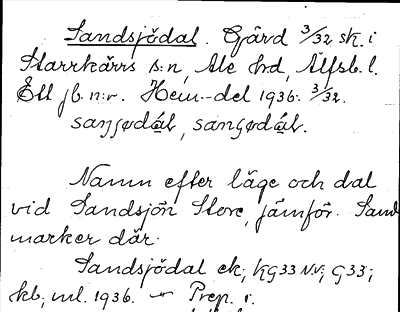 Sandsjödal. Gård 3/32 sk. i
Starrkärrs s:n, Ale hd, Älfsb. l.
Ett jb. n:r. Hem.-del 1936. 3/32.
Namn efter läge och dal
vid Sandsjön Store, jämför. Sand
marker där.
Sandsjödal ek; KG33 NV; G33;
kb, ml. 1936. — Prep. i.